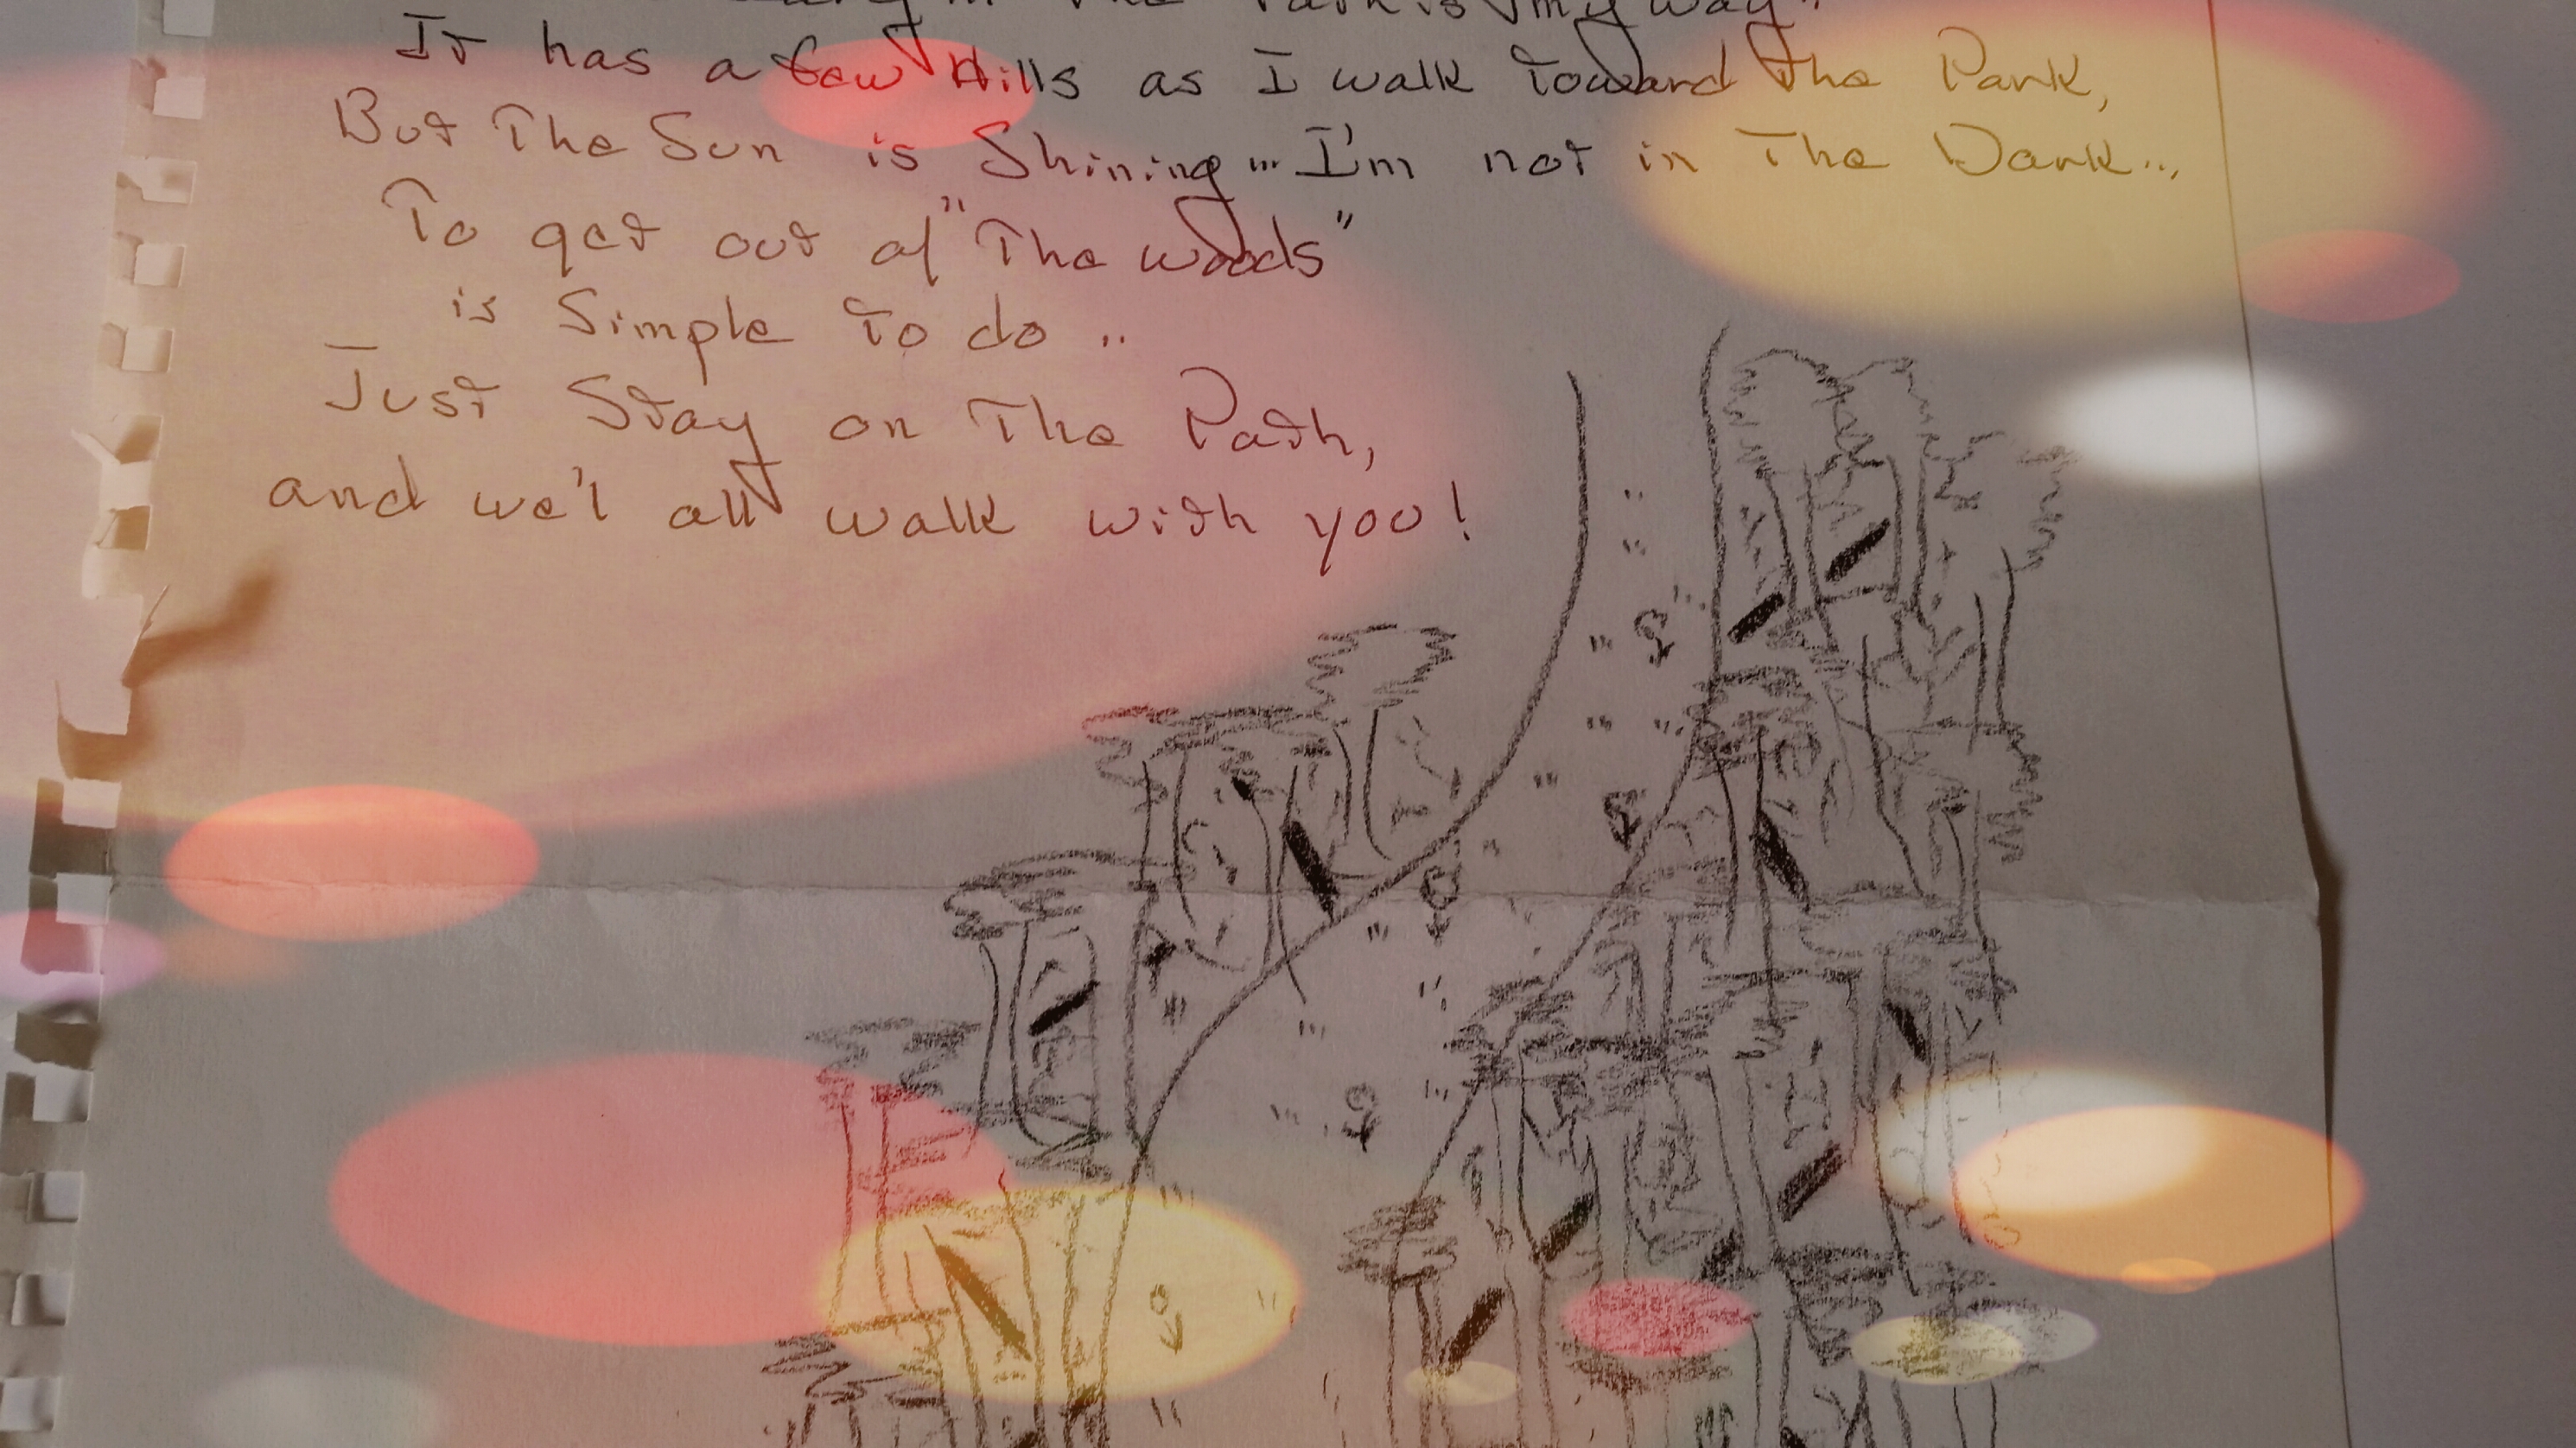 in The Park is my way"
It has a few Hills as I walk toward the Park,
But The Sun is Shining... I'm not in The Dark...
To get out of "The woods"
is Simple to do ..
Just Stay on The Path,
and we'l all walk with you!